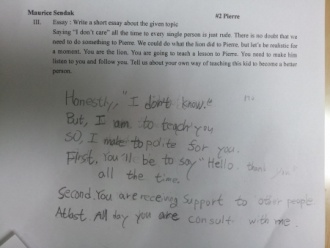 Maurice Sendak #2 Pierre
III. Essay : Write a short essay about the given topic
Saying "I don't care" all the time to every single person is just rude. There is no doubt that we
need to do something to Pierre. We could do what the lion did to Pierre, but let's be realistic for
a moment. You are the lion. You are going to teach a lesson to Pierre. You need to make him
listen to you and follow you. Tell us about your own way of teaching this kid to become a better
person.
Honestly, "I don't know."
But, I am to teach you
So, I to polite for you.
First, You'll be to say "Hello. thank you"
all the time.
Second, You are receiving support to other people
At last. All day you are consult with me.